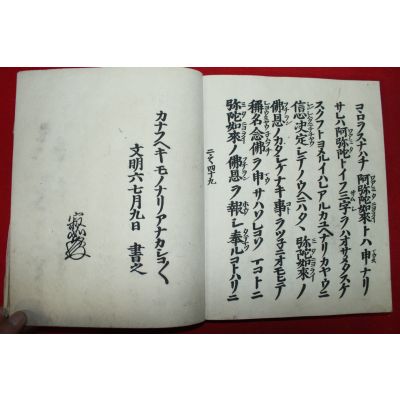 コヽロヲスナハチ阿弥陀如來トハ申ナリ
サレハ阿弥陀トイフ三字ヲハオサメタスケ
スクフトヨメルイハレアルカユヘナリカヤウニ
信心決定シテノウヘニハタヽ弥陀如來ノ
佛恩ノカタシケナキ事ヲツネニオモヒテ
稱名念佛ヲ申サハソレコソマコトニ
弥陀如來ノ佛恩ヲ報シ奉ルコトハリニ
二ノ四十九
カナフヘキモノナリアナカシコ〱
文明六七月九日 書之